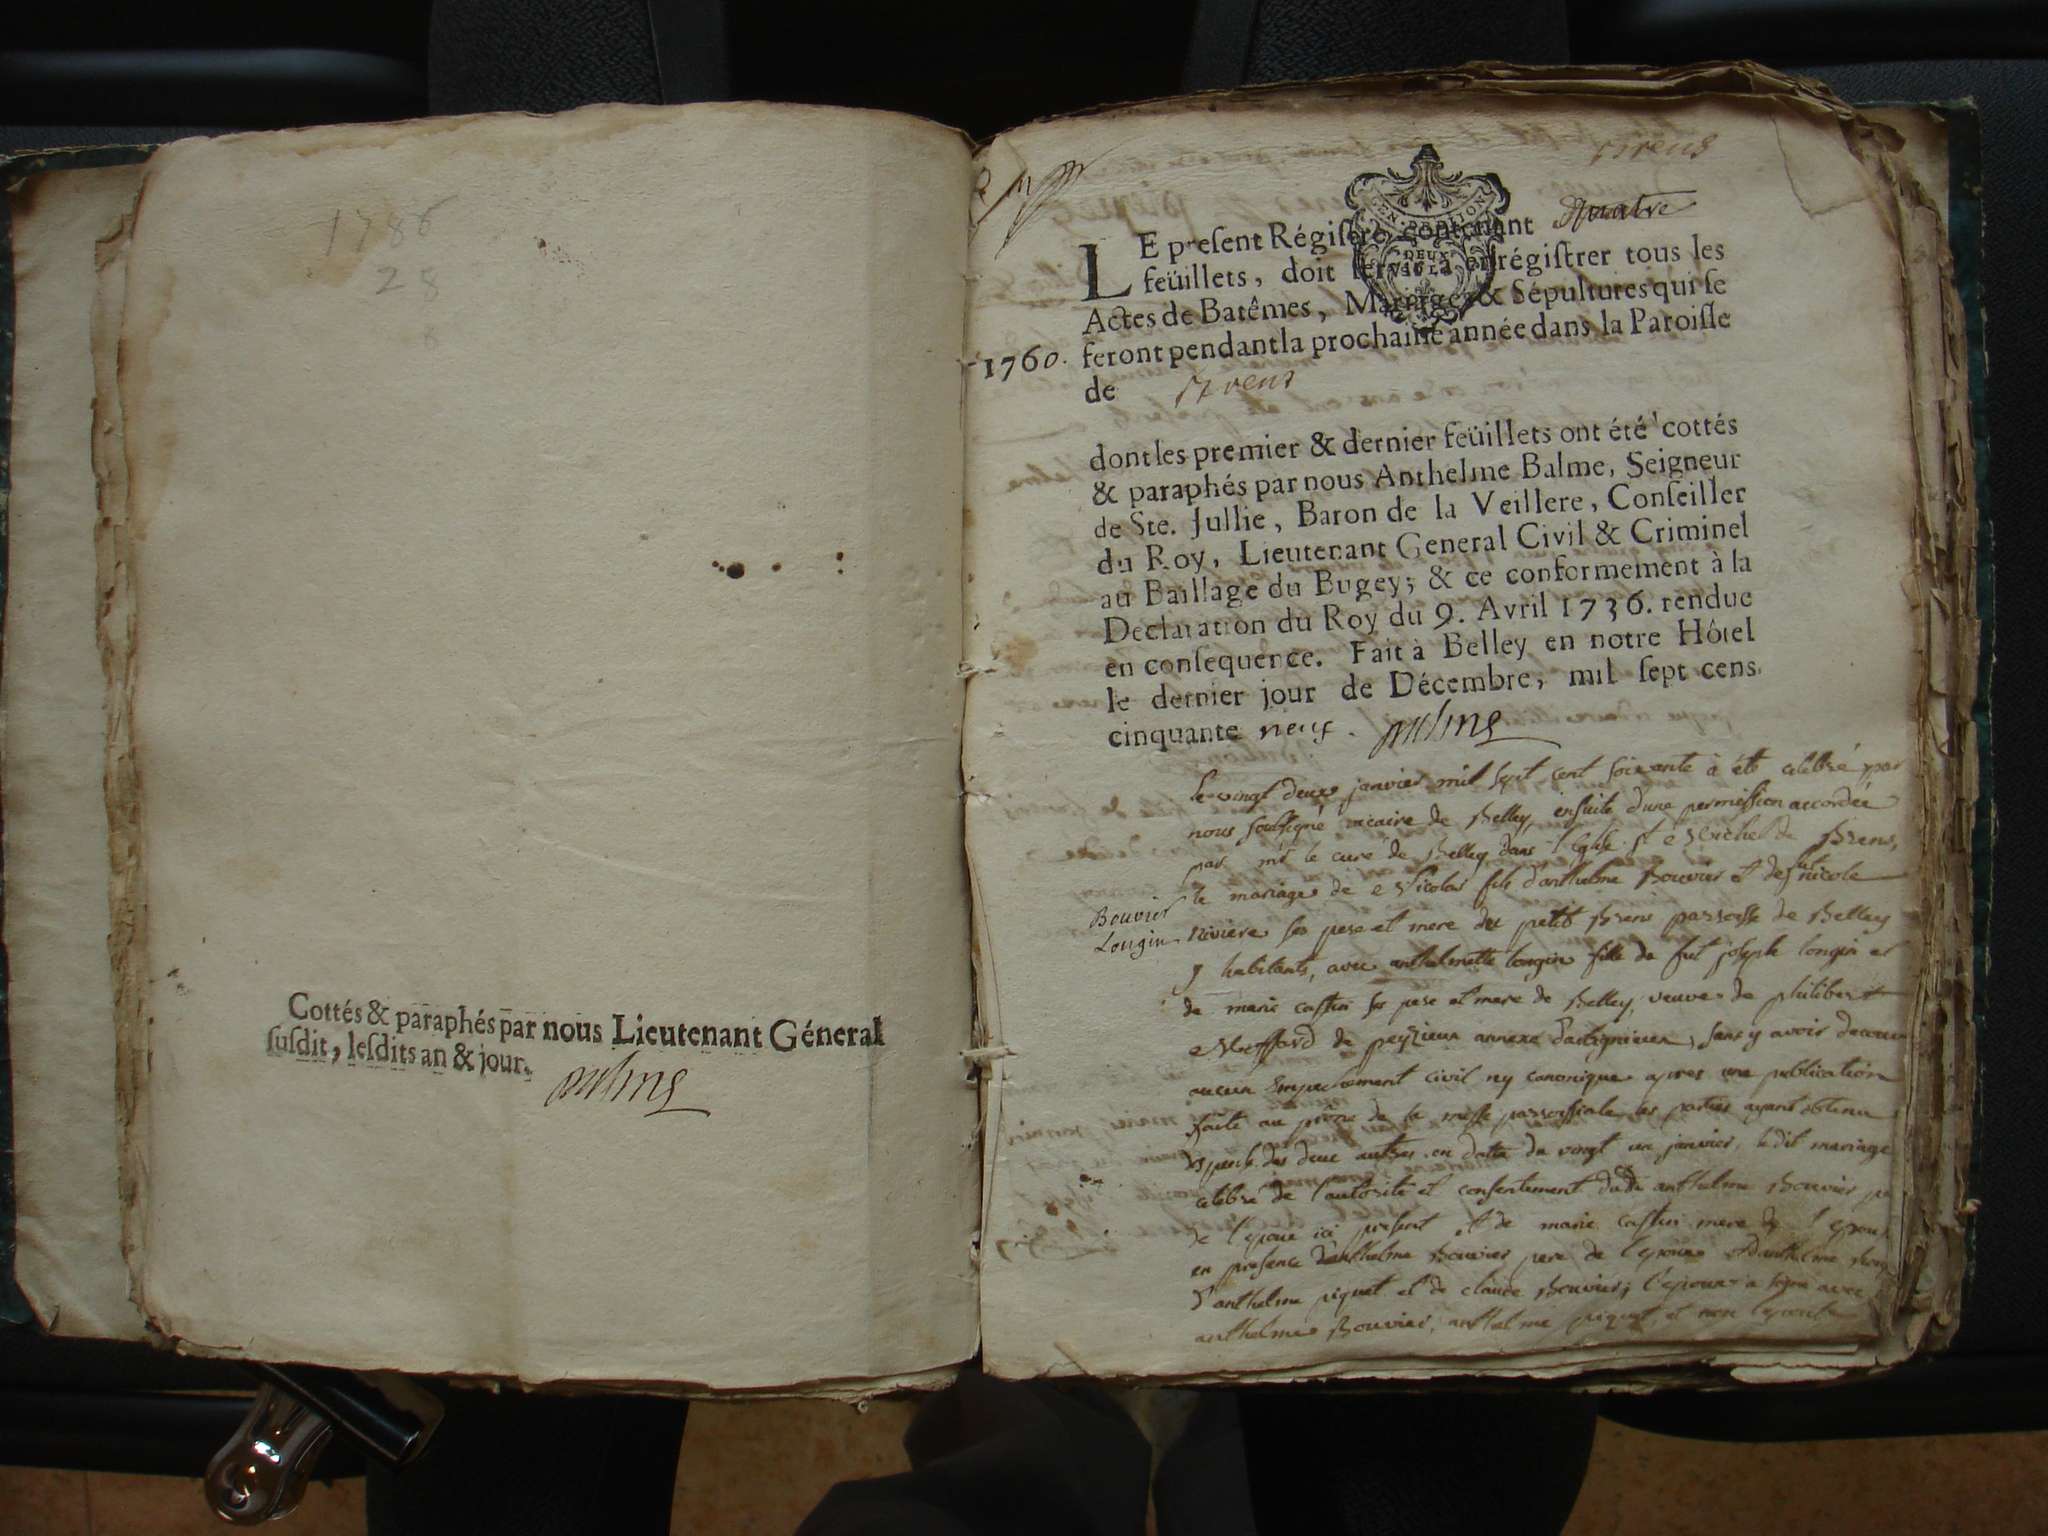 1786
28
8
Cottés & paraphés par nous Lieutenant Géneral
susdit, lesdits an & jour.
Brens
GEN. DEUX SOLS
LE present Régistre contenant quatre
feüillets, doit servir à enrégistrer tous les
Actes de Batêmes, Mariages & Sépultures qui se
1760. feront pendant la prochaine année dans la Paroisse
de Brens
dont les premier & dernier feüillets ont été cottés
& paraphés par nous Anthelme Balme, Seigneur
de Ste. Jullie, Baron de la Veillere, Conseiller
du Roy, Lieutenant General Civil & Criminel
au Baillage du Bugey; & ce conformement à la
Declaration du Roy du 9. Avril 1736. rendue
en consequence. Fait à Belley en notre Hôtel
le dernier jour de Décembre, mil sept cens
cinquante neuf.
le vingt deux janvier mil sept cent soixante à été célébré par
nous soussigné vicaire de Belley, ensuite d'une permission accordée
par mr le curé de Belley dans l'Eglise st Michel de Brens,
le mariage de Nicolas fils d'anthelme Bouvier et de fut nicole
Bouvier
Longin
riviere ses pere et mere du petit Brens parroisse de Belley
y habitants, avec anthelmette longin fille de fut joseph longin et
de marie castin ses pere et mere de Belley, veuve de philibert
de peyzieu annexe d'arbignieu, sans y avoir decouv
aucun empechement civil ny canonique apres une publication
faite au prône de la messe parroissiale, les parties ayant obtenu
dispense des deux autres en datte du vingt un janvier, le dit mariage
célébré de l'autorité et consentement dudt anthelme Bouvier pe
de l'epoux ici present et de marie castin mere de l'epous
en presence d'anthelme Bouvier pere de l'epoux d'anthelme
d'anthelme piquet et de claude Bouvier; l'epoux a signé avec
anthelme Bouvier, anthelme piquet, et non l'epouse